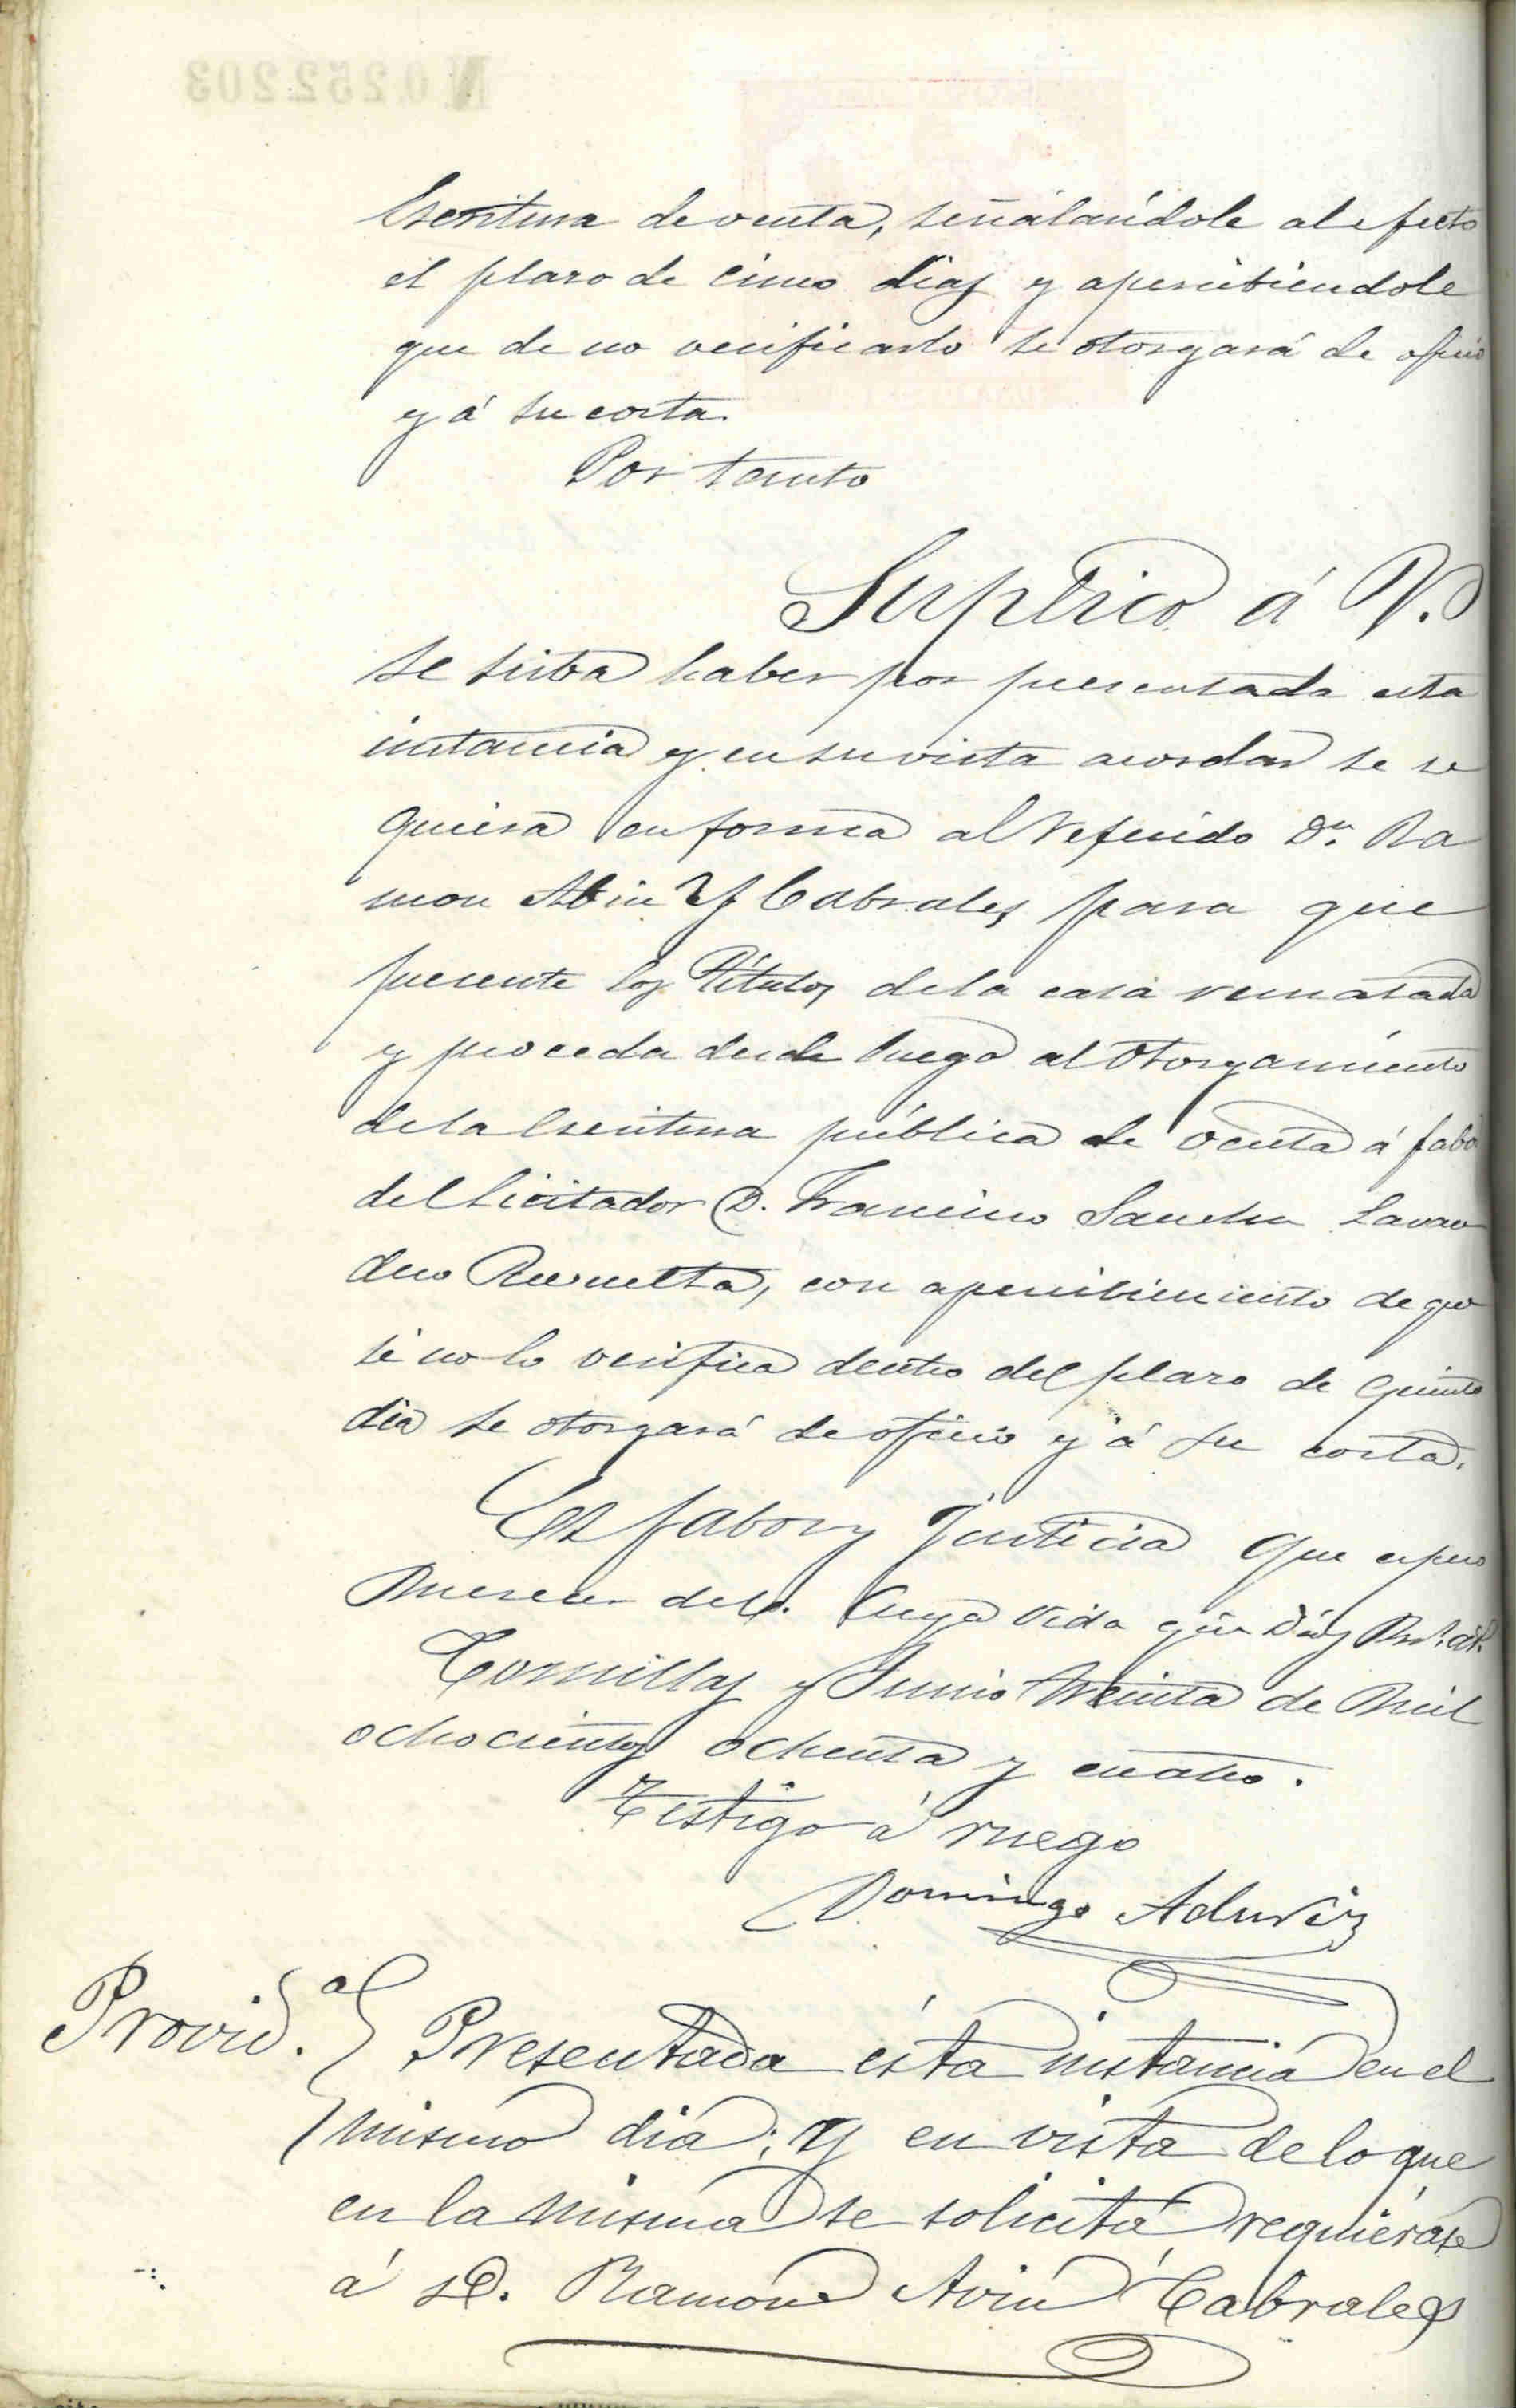 N 0.252.203
Escritura de venta, señalándole al efecto
el plazo de cinco dias y apercibiendole
que de no verificarlo se otorgará de oficio
y á su costa.
Por tanto
Suplico á V.
se sirba haber por presentada esta
instancia y en su vista acordar se re
quiera en forma al referido Dn. Ra
mon Abin y Cabrales para que
presente los Titulos de la casa rematada
y proceda desde luego al otorgamiento
de la Escritura pública de venta á fabor
del licitador D. Francisco Sanchez Lavan
dero Revuelta, con apercibimiento de que
si no lo verifica dentro del plazo de quinto
dia se otorgará de oficio y á su costa.
Es fabor y Justicia que espero
Merecer de V. Cuya vida gûe Dios Ms. as.
Comillas y Junio treinta de Mil
ochocientos ochenta y cuatro.
Testigo á ruego
Domingo Aduviz
Provid.al Presentada ésta instancia en el
mismo dia; y en vista de lo que
en la misma se solicita requiérase
á D. Ramon Avin Cabrales